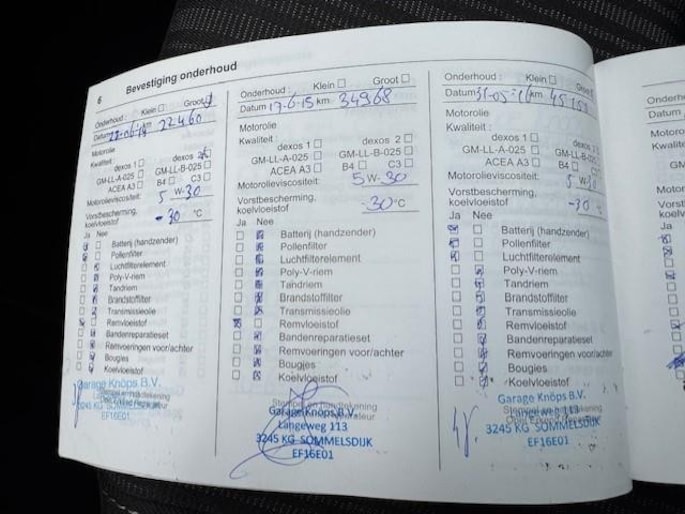 6 Bevestiging onderhoud
Onderhoud : Klein Groot
Datum 22-06-14 km 22460
Motorolie
Kwaliteit : dexos 1 dexos 2
GM-LL-A-025 GM-LL-B-025
ACEA A3 B4 C3
Motorolieviscositeit: 5 W-30
Vorstbescherming,
koelvloeistof -30 °C
Ja Nee
Batterij (handzender)
Pollenfilter
Luchtfilterelement
Poly-V-riem
Tandriem
Brandstoffilter
Transmissieolie
Remvloeistof
Bandenreparatieset
Remvoeringen voor/achter
Bougies
Koelvloeistof
Garage Knöps B.V.
Langeweg 113
3245 KG SOMMELSDIJK
EF16E01
Onderhoud : Klein Groot
Datum 17-6-15 km 34968
Motorolie
Kwaliteit : dexos 1 dexos 2
GM-LL-A-025 GM-LL-B-025
ACEA A3 B4 C3
Motorolieviscositeit: 5 W-30
Vorstbescherming,
koelvloeistof -30 °C
Ja Nee
Batterij (handzender)
Pollenfilter
Luchtfilterelement
Poly-V-riem
Tandriem
Brandstoffilter
Transmissieolie
Remvloeistof
Bandenreparatieset
Remvoeringen voor/achter
Bougies
Koelvloeistof
Stempel en handtekening
Garage Knöps B.V.
Langeweg 113
3245 KG SOMMELSDIJK
EF16E01
Onderhoud : Klein Groot
Datum 31-05-16 km
Motorolie
Kwaliteit : dexos 1 dexos 2
GM-LL-A-025 GM-LL-B-025
ACEA A3 B4 C3
Motorolieviscositeit: 5 W-30
Vorstbescherming,
koelvloeistof -30 °C
Ja Nee
Batterij (handzender)
Pollenfilter
Luchtfilterelement
Poly-V-riem
Tandriem
Brandstoffilter
Transmissieolie
Remvloeistof
Bandenreparatieset
Remvoeringen voor/achter
Bougies
Koelvloeistof
Garage Knöps B.V.
Stempel en handtekening
Langeweg 113
3245 KG SOMMELSDIJK
EF16E01
Datum
Motorolie
Ja